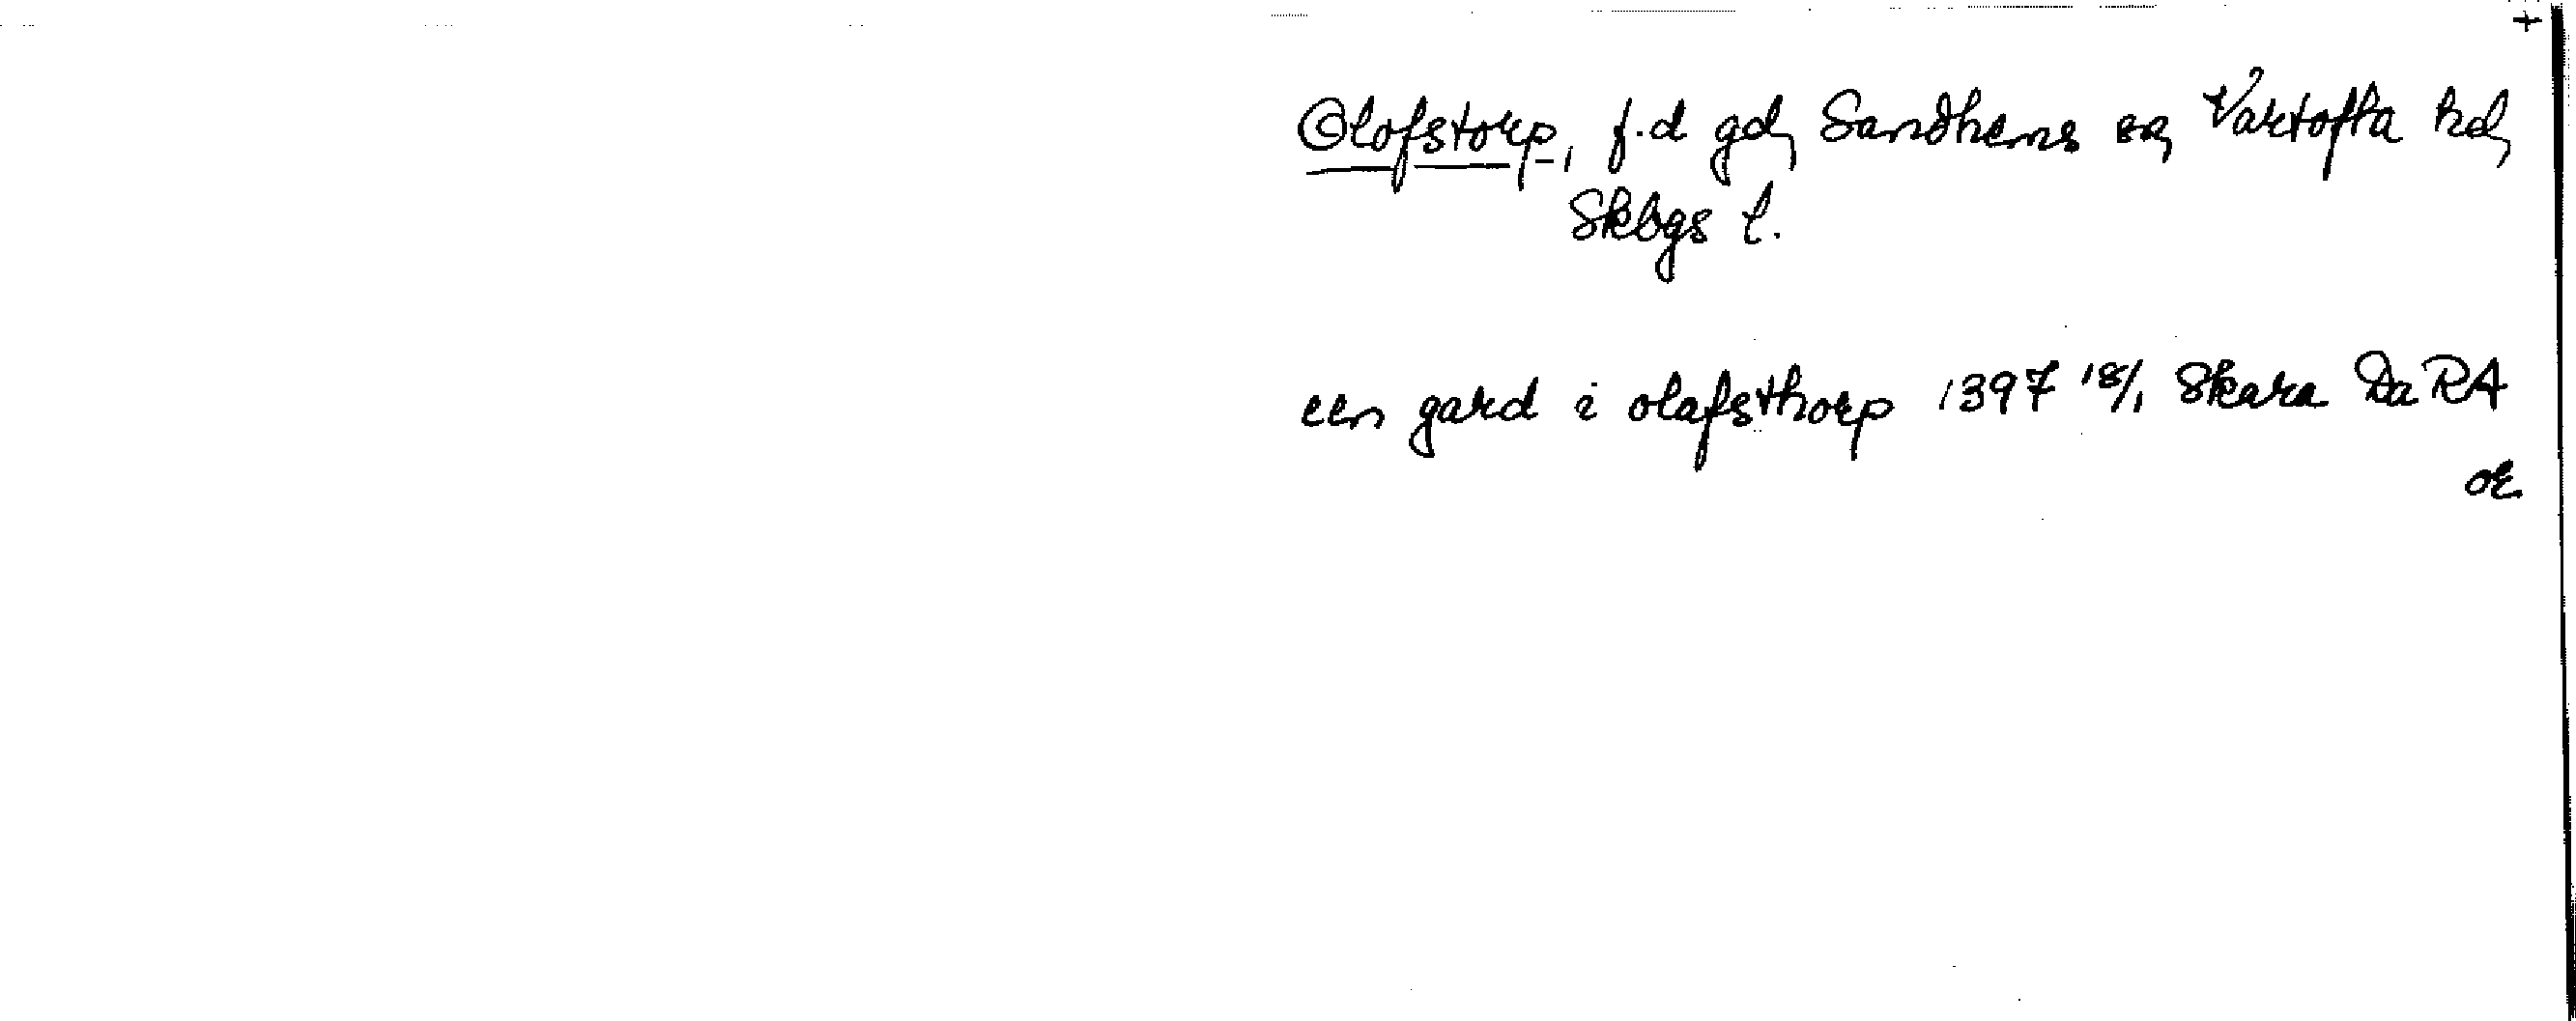 +
Olofstorp, f.d gd, Sandhems sn, Vartofta hd,
Skbgs l.
een gard i olafsthorp 1397 18/1 Skara Da RA
or